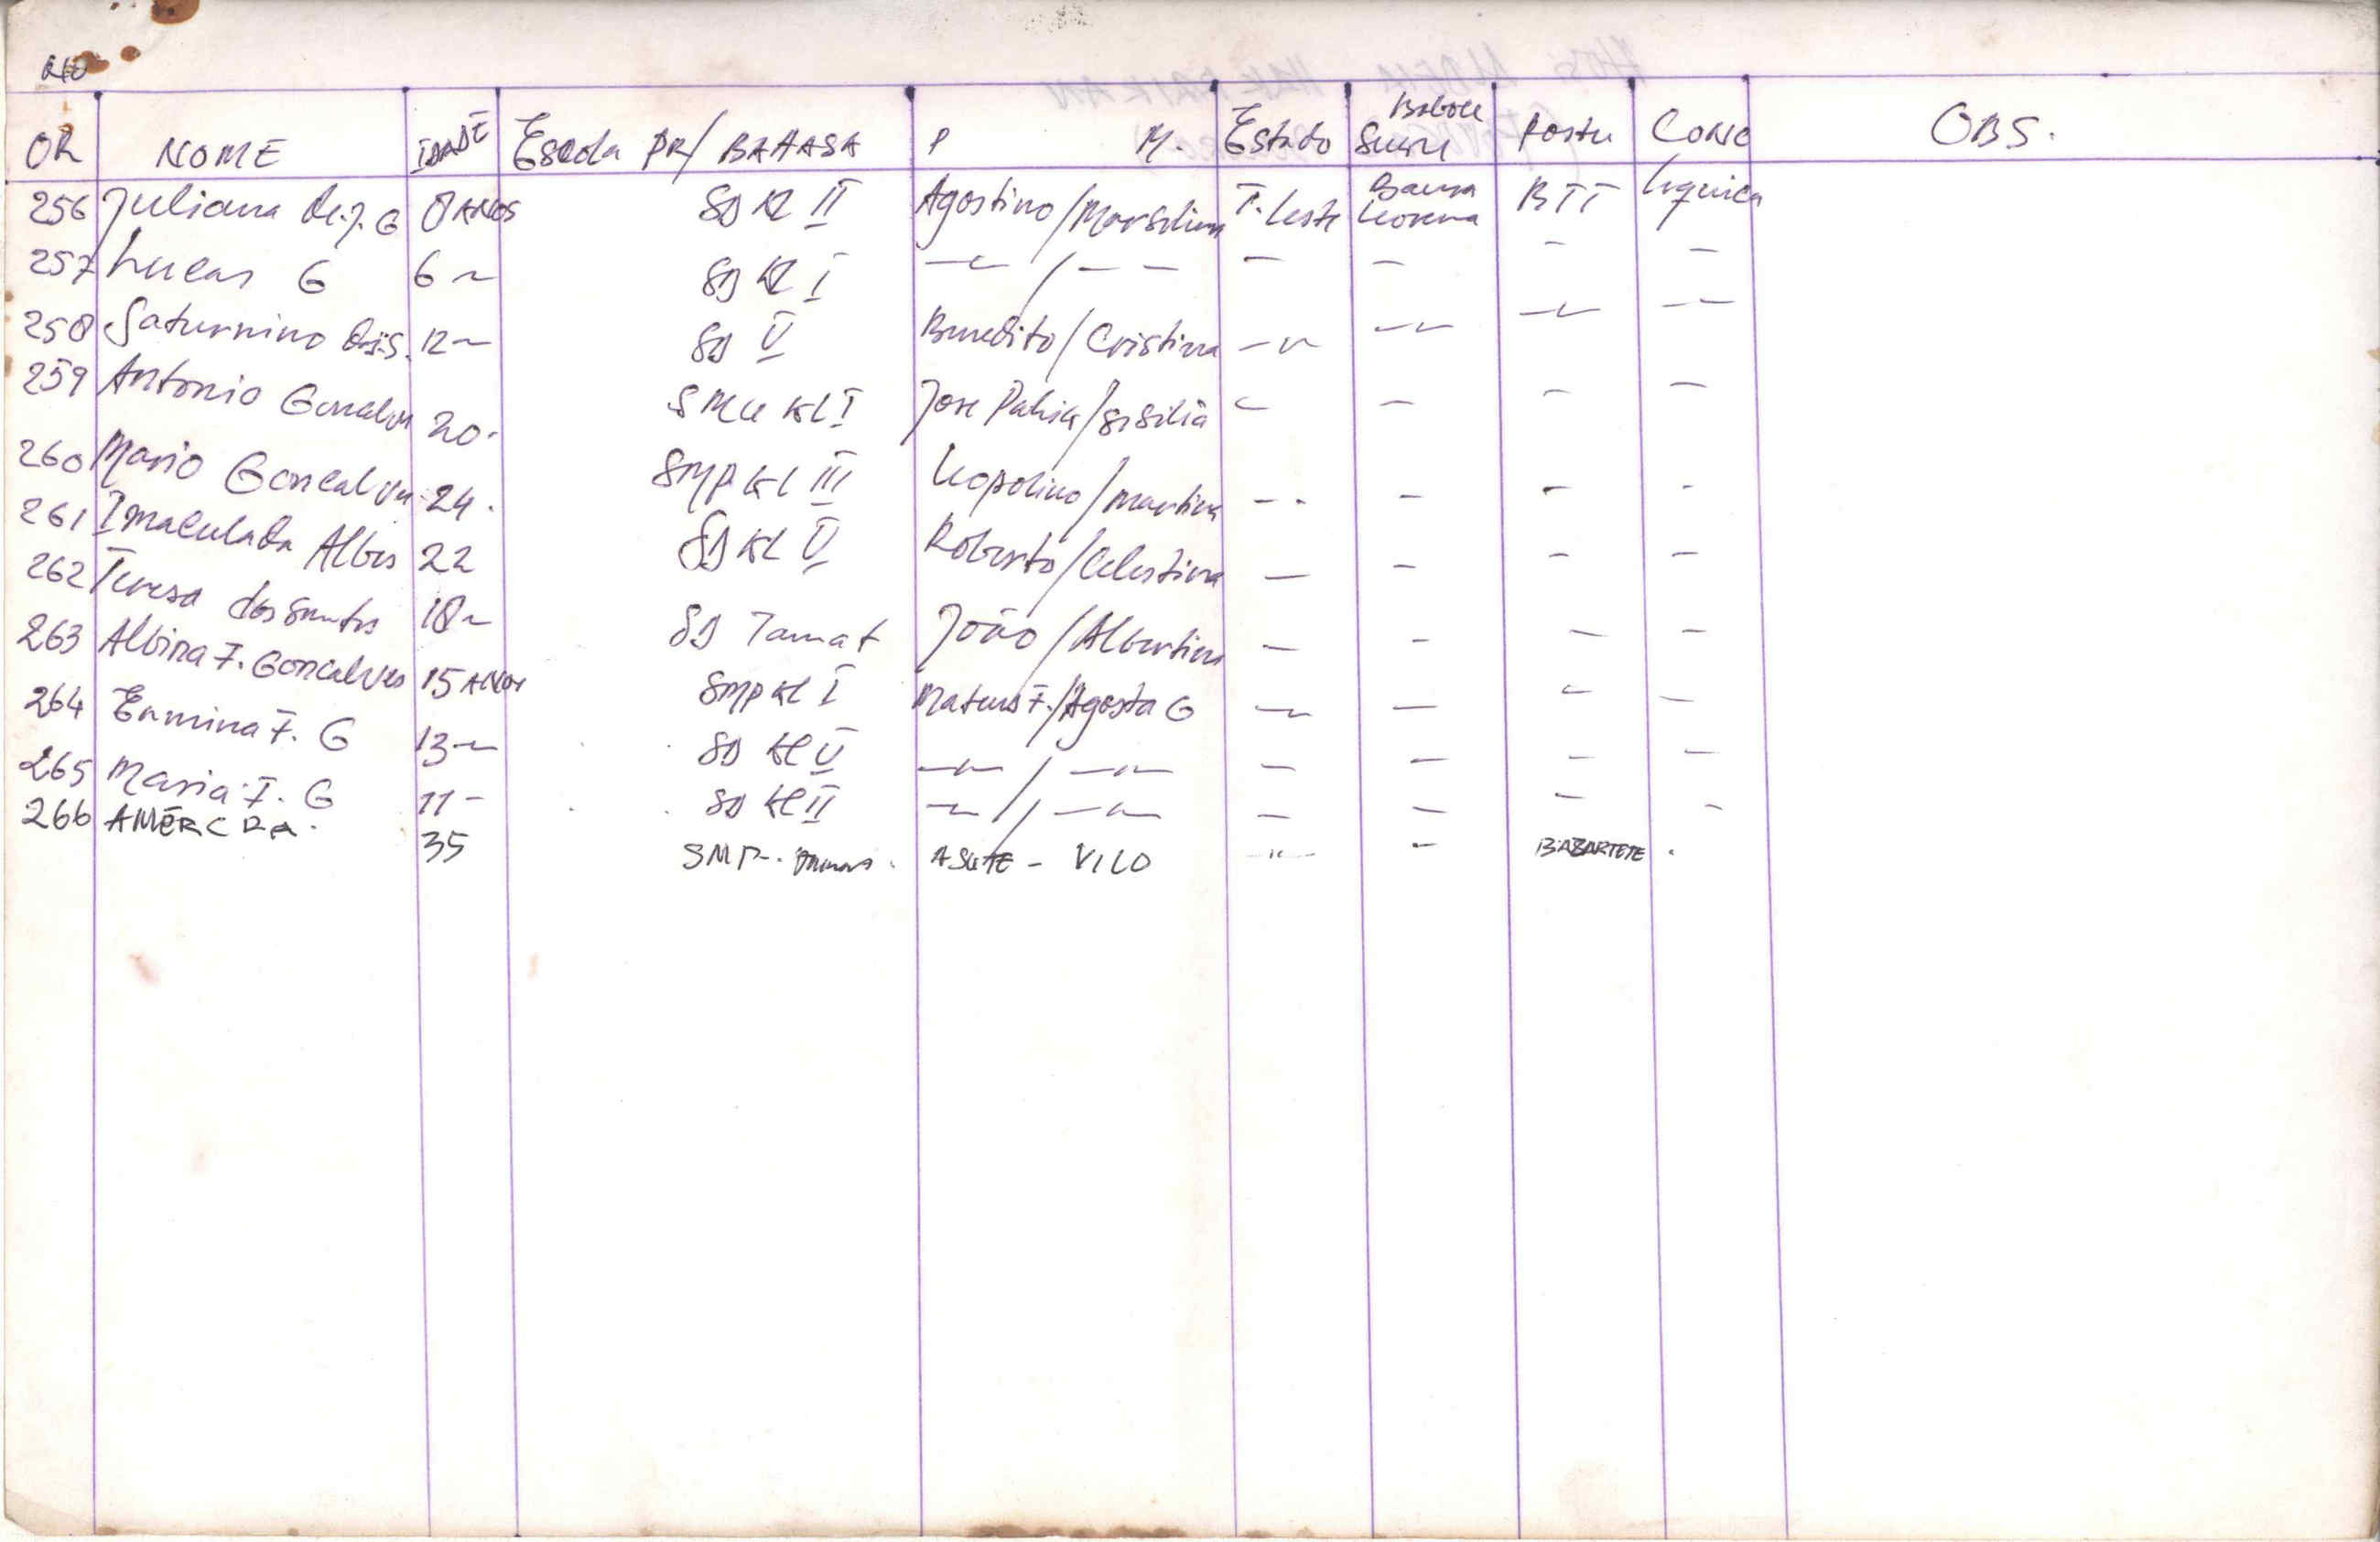 OR NOME IDADE Escola PR/ BAHASA P M. Estado Suku Postu Conc OBS.
256 Juliana de.J. G 8 ANOS SD Kl II Agostino / Marsilina T. Leste Leorema BTT Liquica
257 Lucas G 6 ~ SD Kl I — / — — — — — —
258 Saturnino 12 ~ SD V Benedito / Cristina — — — —
259 Antonio Goncalves 20. KL I Jose / Sisilia — — — —
260 Mario Goncalves 24. SMP KL III Leopolino / Martina — — — —
261 Imaculada Albes 22 SD KL V Roberto / Celestina — — — —
262 Teresa dos Santos 18 ~ SD Tamat João / Albertina — — — —
263 Albina F. Goncalves 15 ANOS SMP Kl I Mateus F. / Agosta G — — — —
264 Ermina F. G 13 ~ SD Kl V — / — — — — —
265 Maria F. G 11 - SD Kl II — / — — — — —
266 35 SMP - VILO — " — - BAZARTETE .